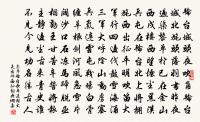 輪台城頭夜吹角輪台
城北旄頭落羽書昨夜
過渠黎單于已在金山
西戍樓西望煙塵黑漢
兵屯在輪台北上將擁
旄西出征平明吹笛大
軍行四邊伐鼓雪海湧
三軍大呼陰山動虜塞
兵氣連雲屯戰場白骨
纏草根劍河風急雪片
闊沙口石凍馬蹄脫亞
相勤王甘苦辛誓將報
主靜邊塵古來青史誰
不見今見功名勝古人